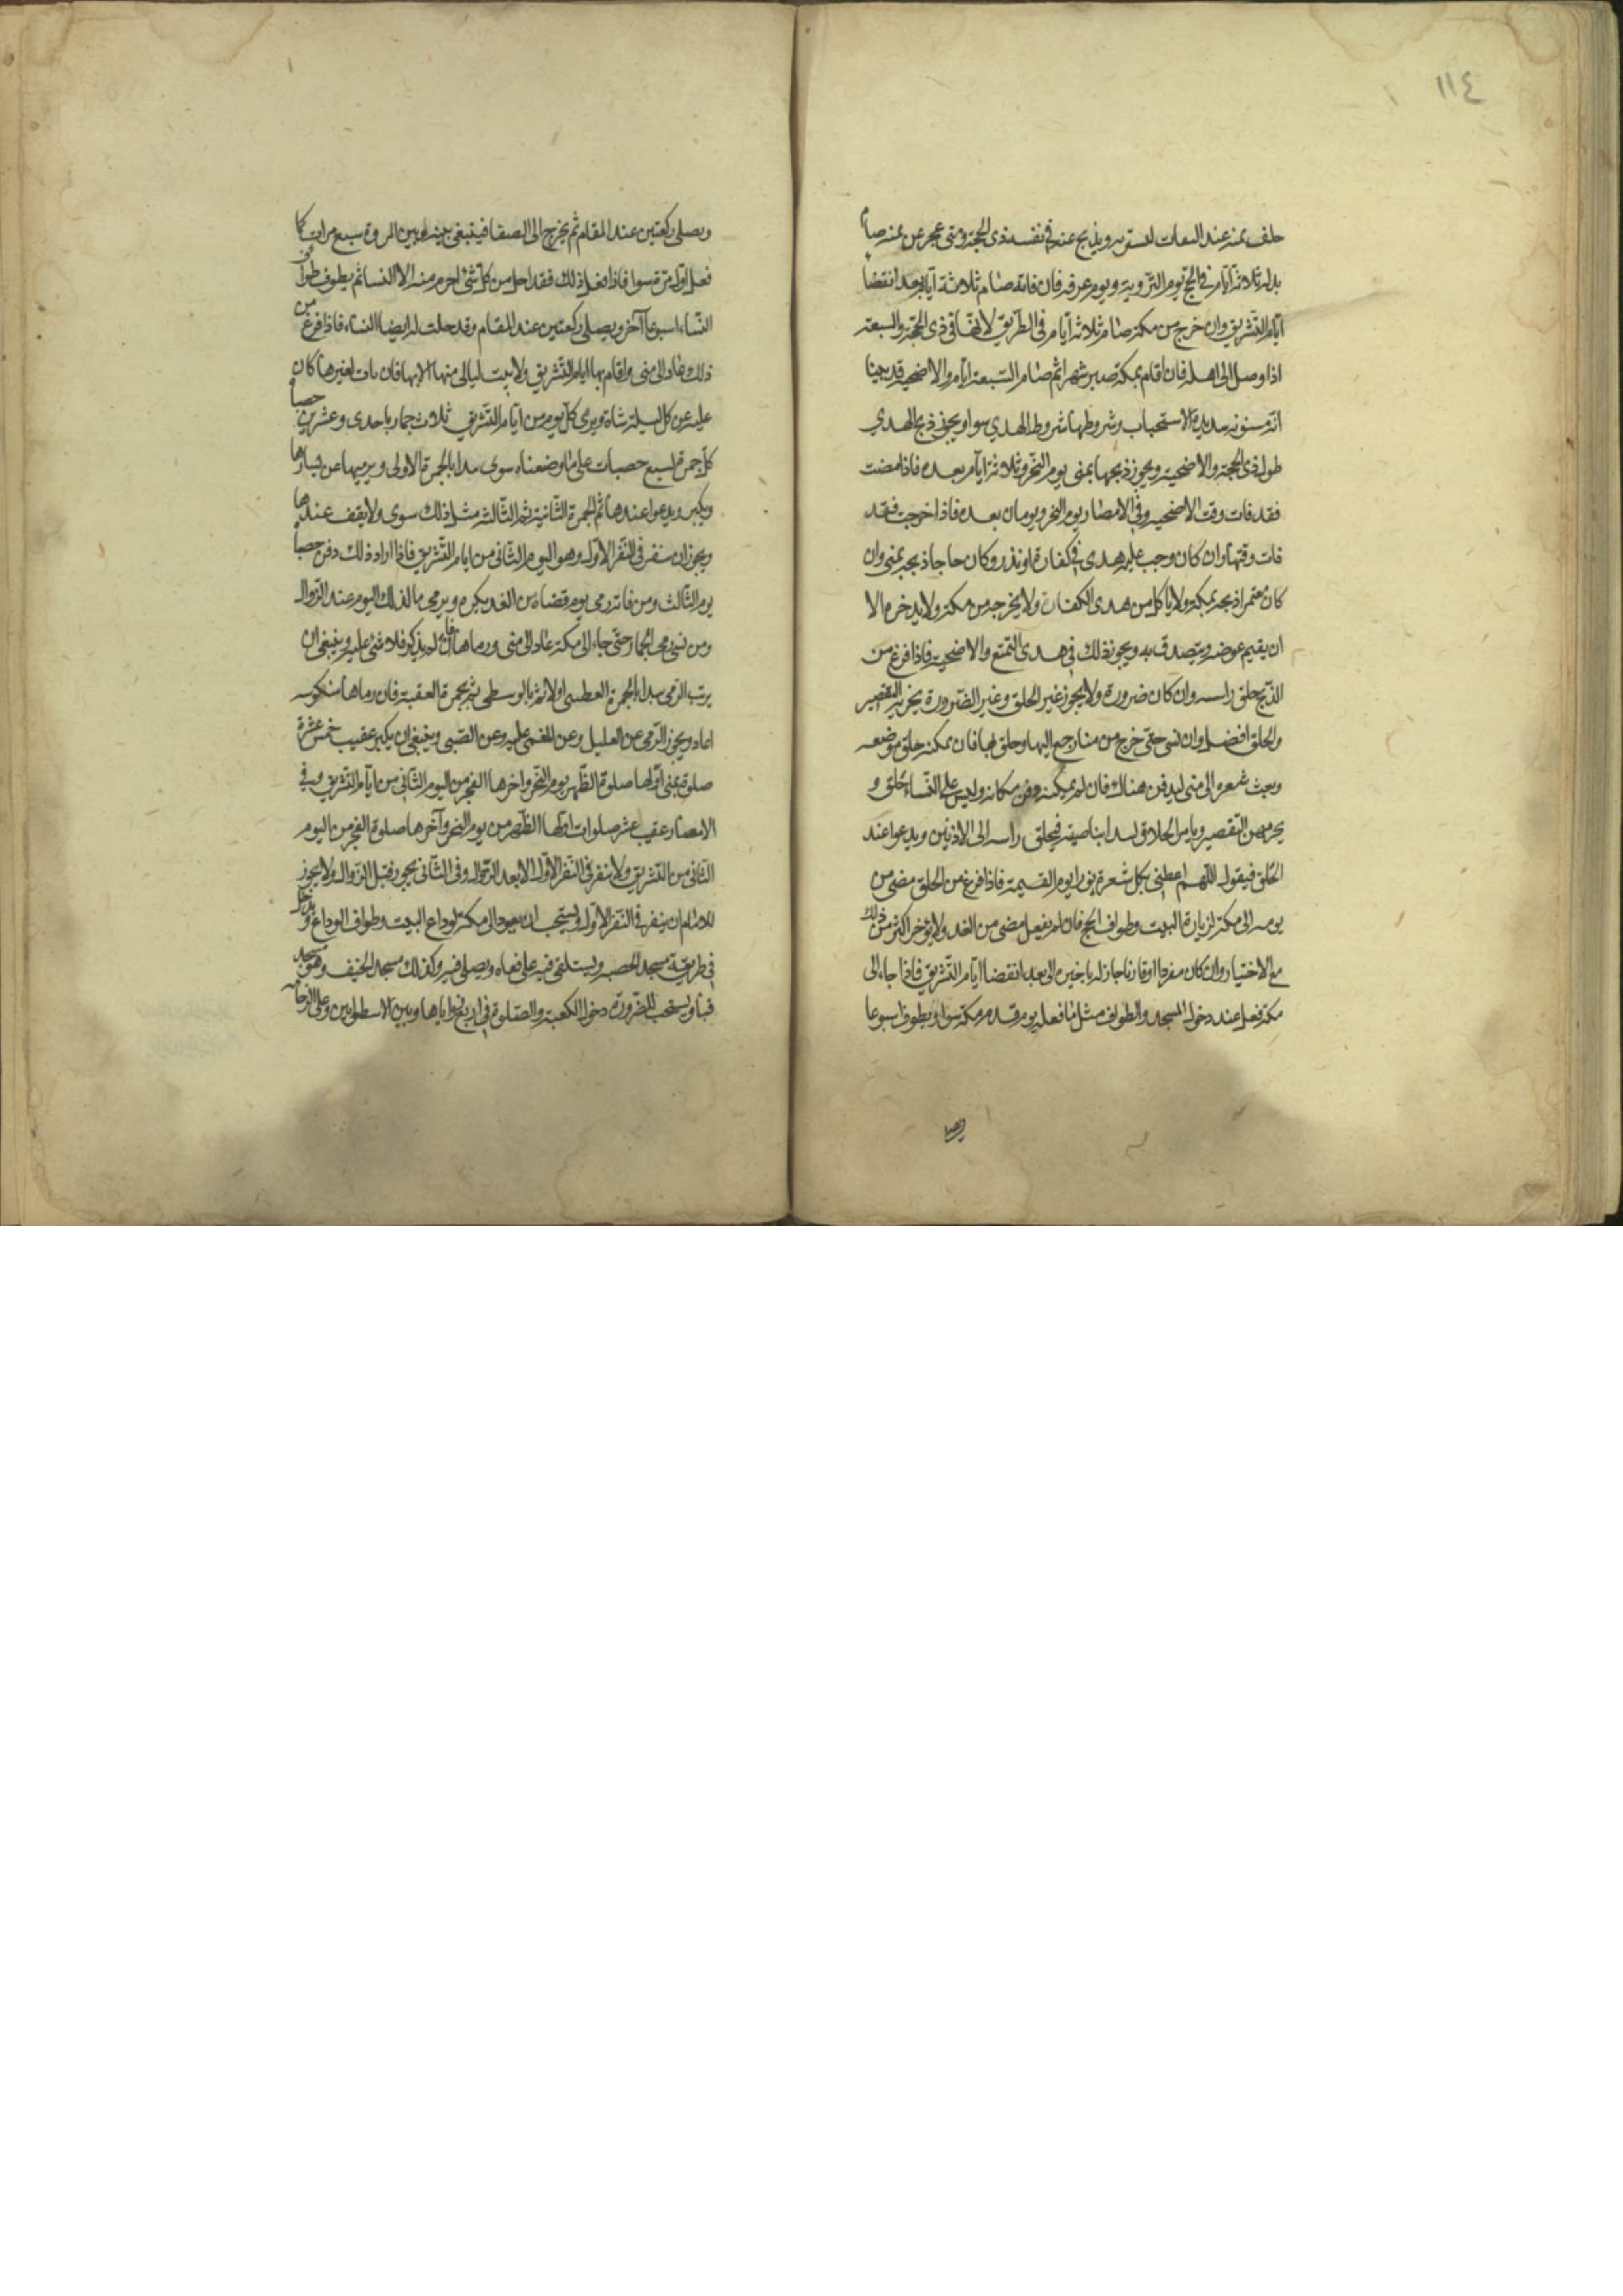 ١١٤
خلف ثمنه عند الثقات ليشتريه ويذبح عنه في نفسه ذى الحجة ومتى عجز عن ثمنه صام
بدله ثلاثة ايام في الحج يوم التروية ويوم عرفه فان فاته صام ثلاثة ايام بعد انقضا
ايام التشريق وان خرج من مكة صام ثلاثة ايام في الطريق لانها في ذى الحجة والسبعة
اذا وصل الى اهله فان اقام بمكة صبر شهرا ثم صام السبعة ايام والاضحية قد بينا
انه مسنونه شديدة الاستحباب وشروطها شروط الهدي سوا ويجوز ذبح الهدي
طول ذى الحجة والاضحية ويجوز ذبحها بمنى يوم النحر وثلاثة ايام بعده فاذا مضت
فقد فات وقت الاضحية وفي الامصار يوم النحر ويومان بعده فاذا خرجت فقد
فات وقتها وان كان وجب عليه هدى في كفارة او نذر وكان حاجا ذبحه بمنى وان
كان معتمرا ذبحه بمكة ولا ياكل من هدى الكفارة ولا يخرجه من مكة ولا يدخره الا
ان يقيم عوضه ويتصدق به ويجوز ذلك في هدى التمتع والاضحية فاذا فرغ من
الذبح حلق راسه وان كان ضرورة ولا يجوز غير الحلق وغير الضرورة يجزيه التقصير
والحلق افضل وان نسى حتى خرج من منا رجع اليها وحلق بها فان يمكنه حلق موضعه
وبعث شعره الى منى ليدفن هناك فان لم يمكنه دفن مكانه وليس على النساء حلق و
يجزيهن التقصير ويامر الحلاق ليبدا بناصيته فيحلق راسه الى الاذنين ويدعوا عند
الحلق فيقول اللهم اعطنى بكل شعرة نورا يوم القيمة فاذا فرغ من الحلق مضى من
يومه الى مكة لزيارة البيت وطواف الحج فان لم يفعل مضى من الغد ولا يؤخر اكثر من ذلك
مع الاختيار وان كان مفردا او قارنا جاز له تاخيره الى بعد انقضا ايام التشريق فاذا جاء الى
مكة فعل عند دخول المسجد والطواف مثل ما فعله يوم قدم مكة سوا ويطوف اسبوعا
ويصلى
ويصلى ركعتين عند المقام ثم يخرج الى الصفا فيسعى بينه وبين المروة سبع مرات كما
فعل اول مرة سوا فاذا فعل ذلك فقد احل من كل شئ احرم منه الا النسا ثم يطوف طواف
النساء اسبوعا آخر ويصلى ركعتين عند المقام وقد حلت له ايضا النساء فاذا فرغ من
ذلك عاد الى منى واقام بها ايام التشريق ولا يبت ليالى منها الا بها فان بات بغيرها كان
عليه عن كل ليلة شاة ويرمى كل يوم من ايام التشريق ثلاث جمار باحدى وعشرين حصاة
كل جمرة بسبع حصيات على ما وضعناه سوى يبدا بالجمرة الاولى ويرميها عن يسارها
ويكبر ويدعوا عندها ثم الجمرة الثانية ثم الثالثة مثل ذلك سوى ولا يقف عندها
ويجوز ان ينفر في النفر الاول وهو اليوم الثاني من ايام التشريق فاذا اراد ذلك دفن حصا
يوم الثالث ومن فاته رمى يوم قضاه من الغد بكره ويرمى ما لذلك اليوم عند الزوال
ومن نسى رمى الجمار حتى جاء الى مكة عاد الى منى ورماها فان لم يذكر فلا شئ عليه وينبغى ان
يرتب الرمى يبدا بالجمرة العظمى اولا ثم بالوسطى ثم بجمرة العقبة فان رماها منكوسه
اعاد ويجوز الرمى عن العليل وعن المغمى عليه وعن الصبى وينبغى ان يكبر عقيب خمس عشرة
صلوة بمنى اولها صلوة الظهر يوم النحر واخرها الفجر من اليوم الثاني من ايام التشريق وفي
الامصار عقيب عشر صلوات اولها الظهر من يوم النحر وآخرها صلوة الفجر من اليوم
الثاني من التشريق ولا ينفر في النفر الاول الا بعد الزوال وفي الثاني يجوز قبل الزوال ولا يجوز
للامام ان ينفر في النفر الاول ويستحب ان يعود الى مكة لوداع البيت وطواف الوداع ويدخل
في طريقه مسجد الحصبه ويستلقى فيه على قفاه ويصلى فيه وكذلك مسجد الخيف وهو مسجد
قبا ويستحب للضرورة دخول الكعبة والصلوة في اربع زواياها وبين الاسطوانين وعلى الرخامه